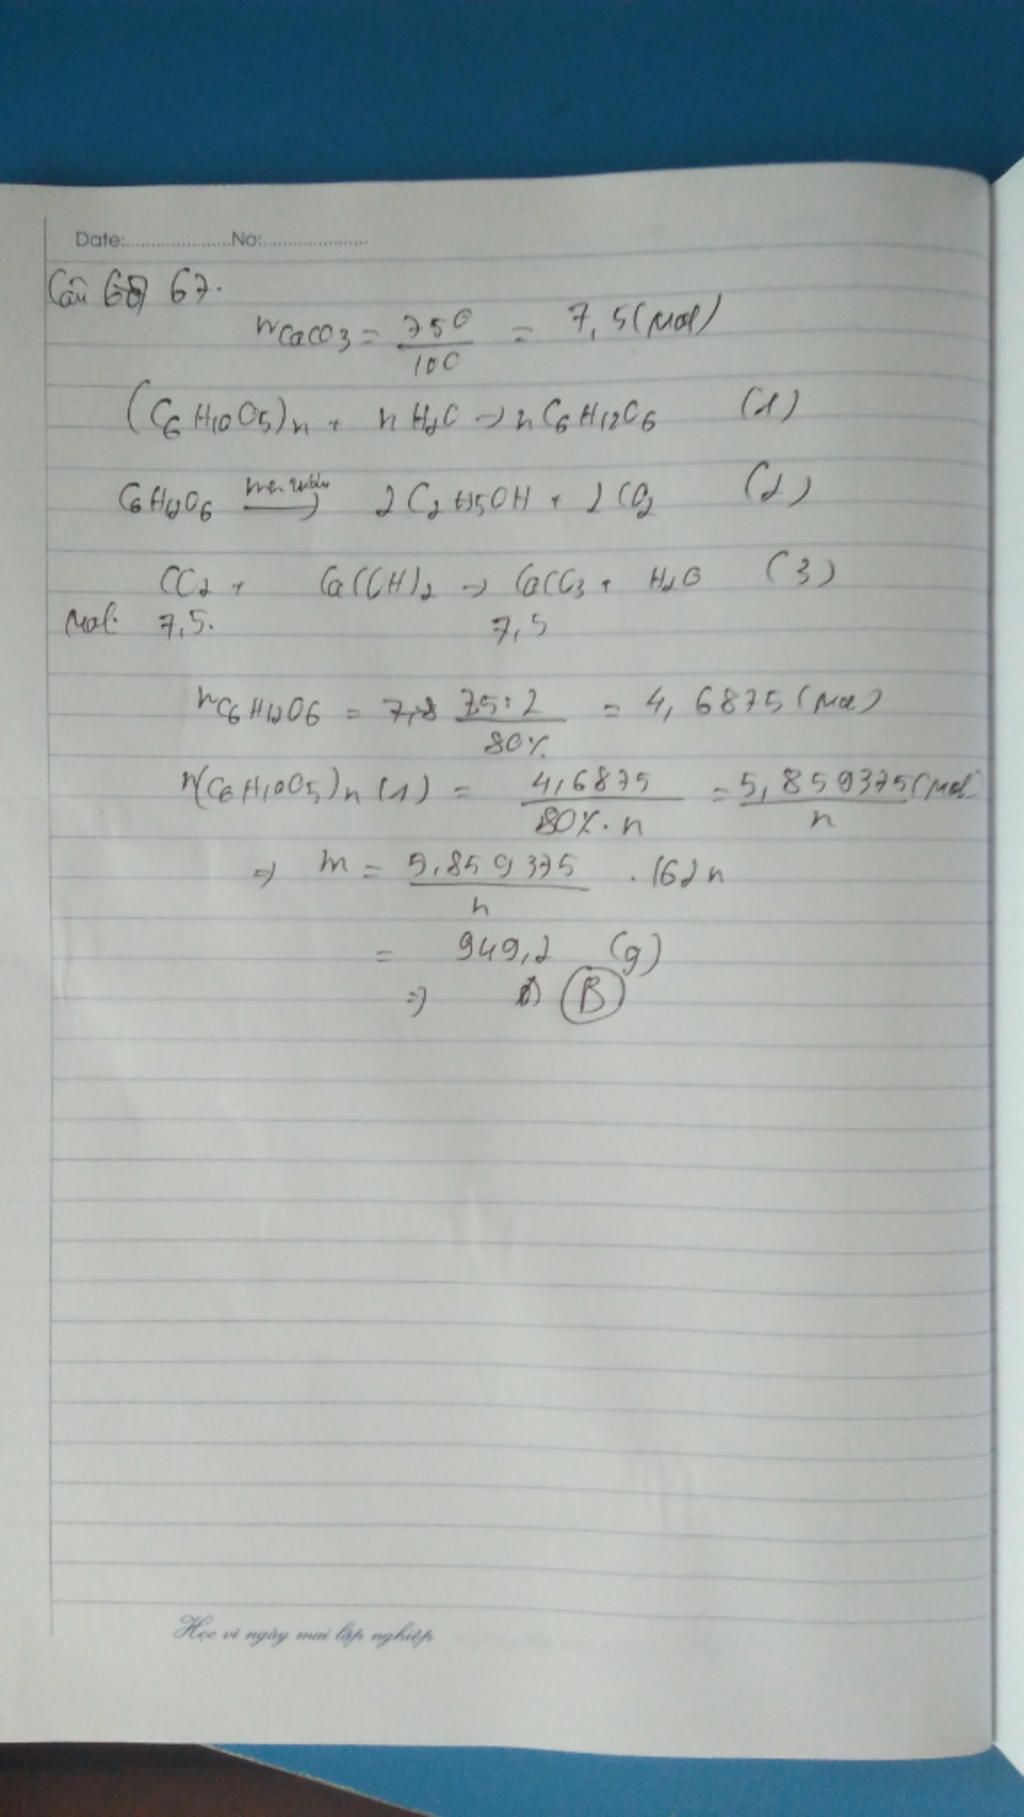 Date:.....................No:.....................
Câu 67.
nCaCO3 = 750/100 = 7,5 (mol)
(C6H10O5)n + nH2O → nC6H12O6 (1)
C6H12O6 men rượu → 2C2H5OH + 2CO2 (2)
CO2 + Ca(OH)2 → CaCO3 + H2O (3)
Mol: 7,5. 7,5
nC6H12O6 = 7,5:2/80% = 4,6875 (mol)
n(C6H10O5)n (1) = 4,6875/80%.n = 5,859375/n (mol)
=> m = 5,859375/n . 162n
= 949,2 (g)
=> B
Học vì ngày mai lập nghiệp